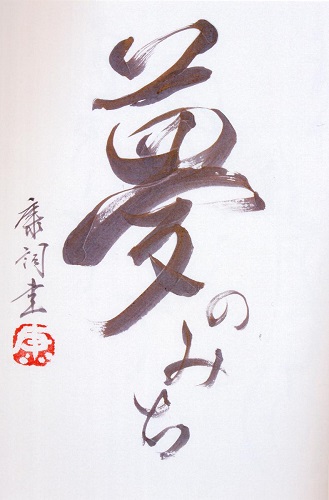 夢
のみち
康詞書